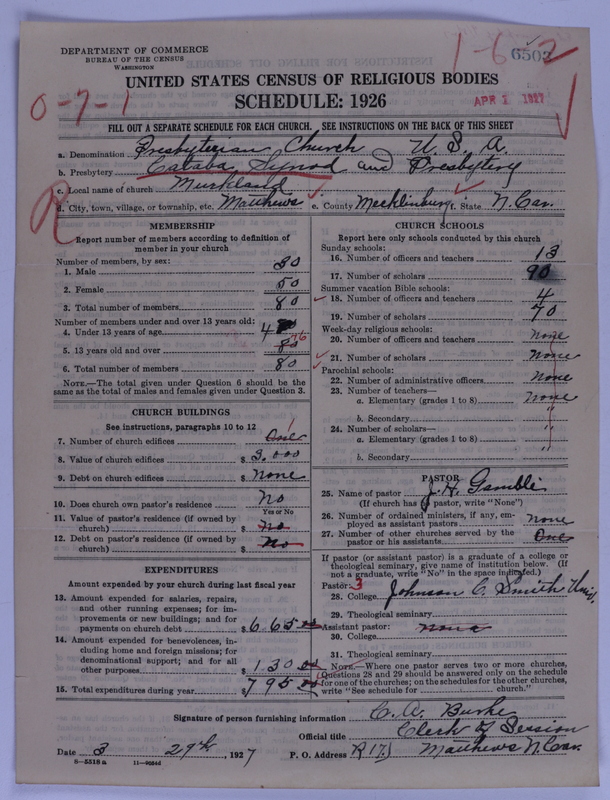 DEPARTMENT OF COMMERCE
BUREAU OF THE CENSUS
WASHINGTON
1-6 2
6502
UNITED STATES CENSUS OF RELIGIOUS BODIES
SCHEDULE: 1926
0-7-1
APR 1 1927
FILL OUT A SEPARATE SCHEDULE FOR EACH CHURCH. SEE INSTRUCTIONS ON THE BACK OF THIS SHEET
a. Denomination Presbyterian Church U. S. A.
b. Presbytery Cataba Synod and Presbytery
c. Local name of church Murkland
d. City, town, village, or township, etc. Matthews e. County Mecklinburg f. State N. Car.
MEMBERSHIP
Report number of members according to definition of member in your church
Number of members, by sex:
1. Male 30
2. Female 50
3. Total number of members 80
Number of members under and over 13 years old:
4. Under 13 years of age 4
5. 13 years old and over 80 76
6. Total number of members 80
NOTE.—The total given under Question 6 should be the same as the total of males and females given under Question 3.
CHURCH BUILDINGS
See instructions, paragraphs 10 to 12
7. Number of church edifices One 1
8. Value of church edifices $ 3.000
9. Debt on church edifices $ None
10. Does church own pastor's residence? No
Yes or No
11. Value of pastor's residence (if owned by church) $ No
12. Debt on pastor's residence (if owned by church) $ No
EXPENDITURES
Amount expended by your church during last fiscal year
13. Amount expended for salaries, repairs, and other running expenses; for improvements or new buildings; and for payments on church debt $ 665 00
14. Amount expended for benevolences, including home and foreign missions; for denominational support; and for all other purposes $ 130 00
15. Total expenditures during year $ 795 00
CHURCH SCHOOLS
Report here only schools conducted by this church
Sunday schools:
16. Number of officers and teachers 13
17. Number of scholars 90
Summer vacation Bible schools:
18. Number of officers and teachers 4
19. Number of scholars 70
Week-day religious schools:
20. Number of officers and teachers None
21. Number of scholars None
Parochial schools:
22. Number of administrative officers None
23. Number of teachers—
a. Elementary (grades 1 to 8) None
b. Secondary "
24. Number of scholars—
a. Elementary (grades 1 to 8) "
b. Secondary "
PASTOR
25. Name of pastor J. H. Gamble
(If church has no pastor, write "None")
26. Number of ordained ministers, if any, employed as assistant pastors None
27. Number of other churches served by the pastor or his assistants One
If pastor (or assistant pastor) is a graduate of a college or theological seminary, give name of institution below. (If not a graduate, write "No" in the space indicated.)
Pastor: 3
28. College Johnson C. Smith Univ.
29. Theological seminary
Assistant pastor: None
30. College
31. Theological seminary
NOTE.—Where one pastor serves two or more churches, Questions 28 and 29 should be answered only on the schedule for one of the churches; on the schedules for the other churches, write "See schedule for church."
Signature of person furnishing information C. A. Burke
Official title Clerk of Session
Date 3 29th, 1927 P. O. Address R 17 Matthews N. Car.
8—5518 a 11—9654d